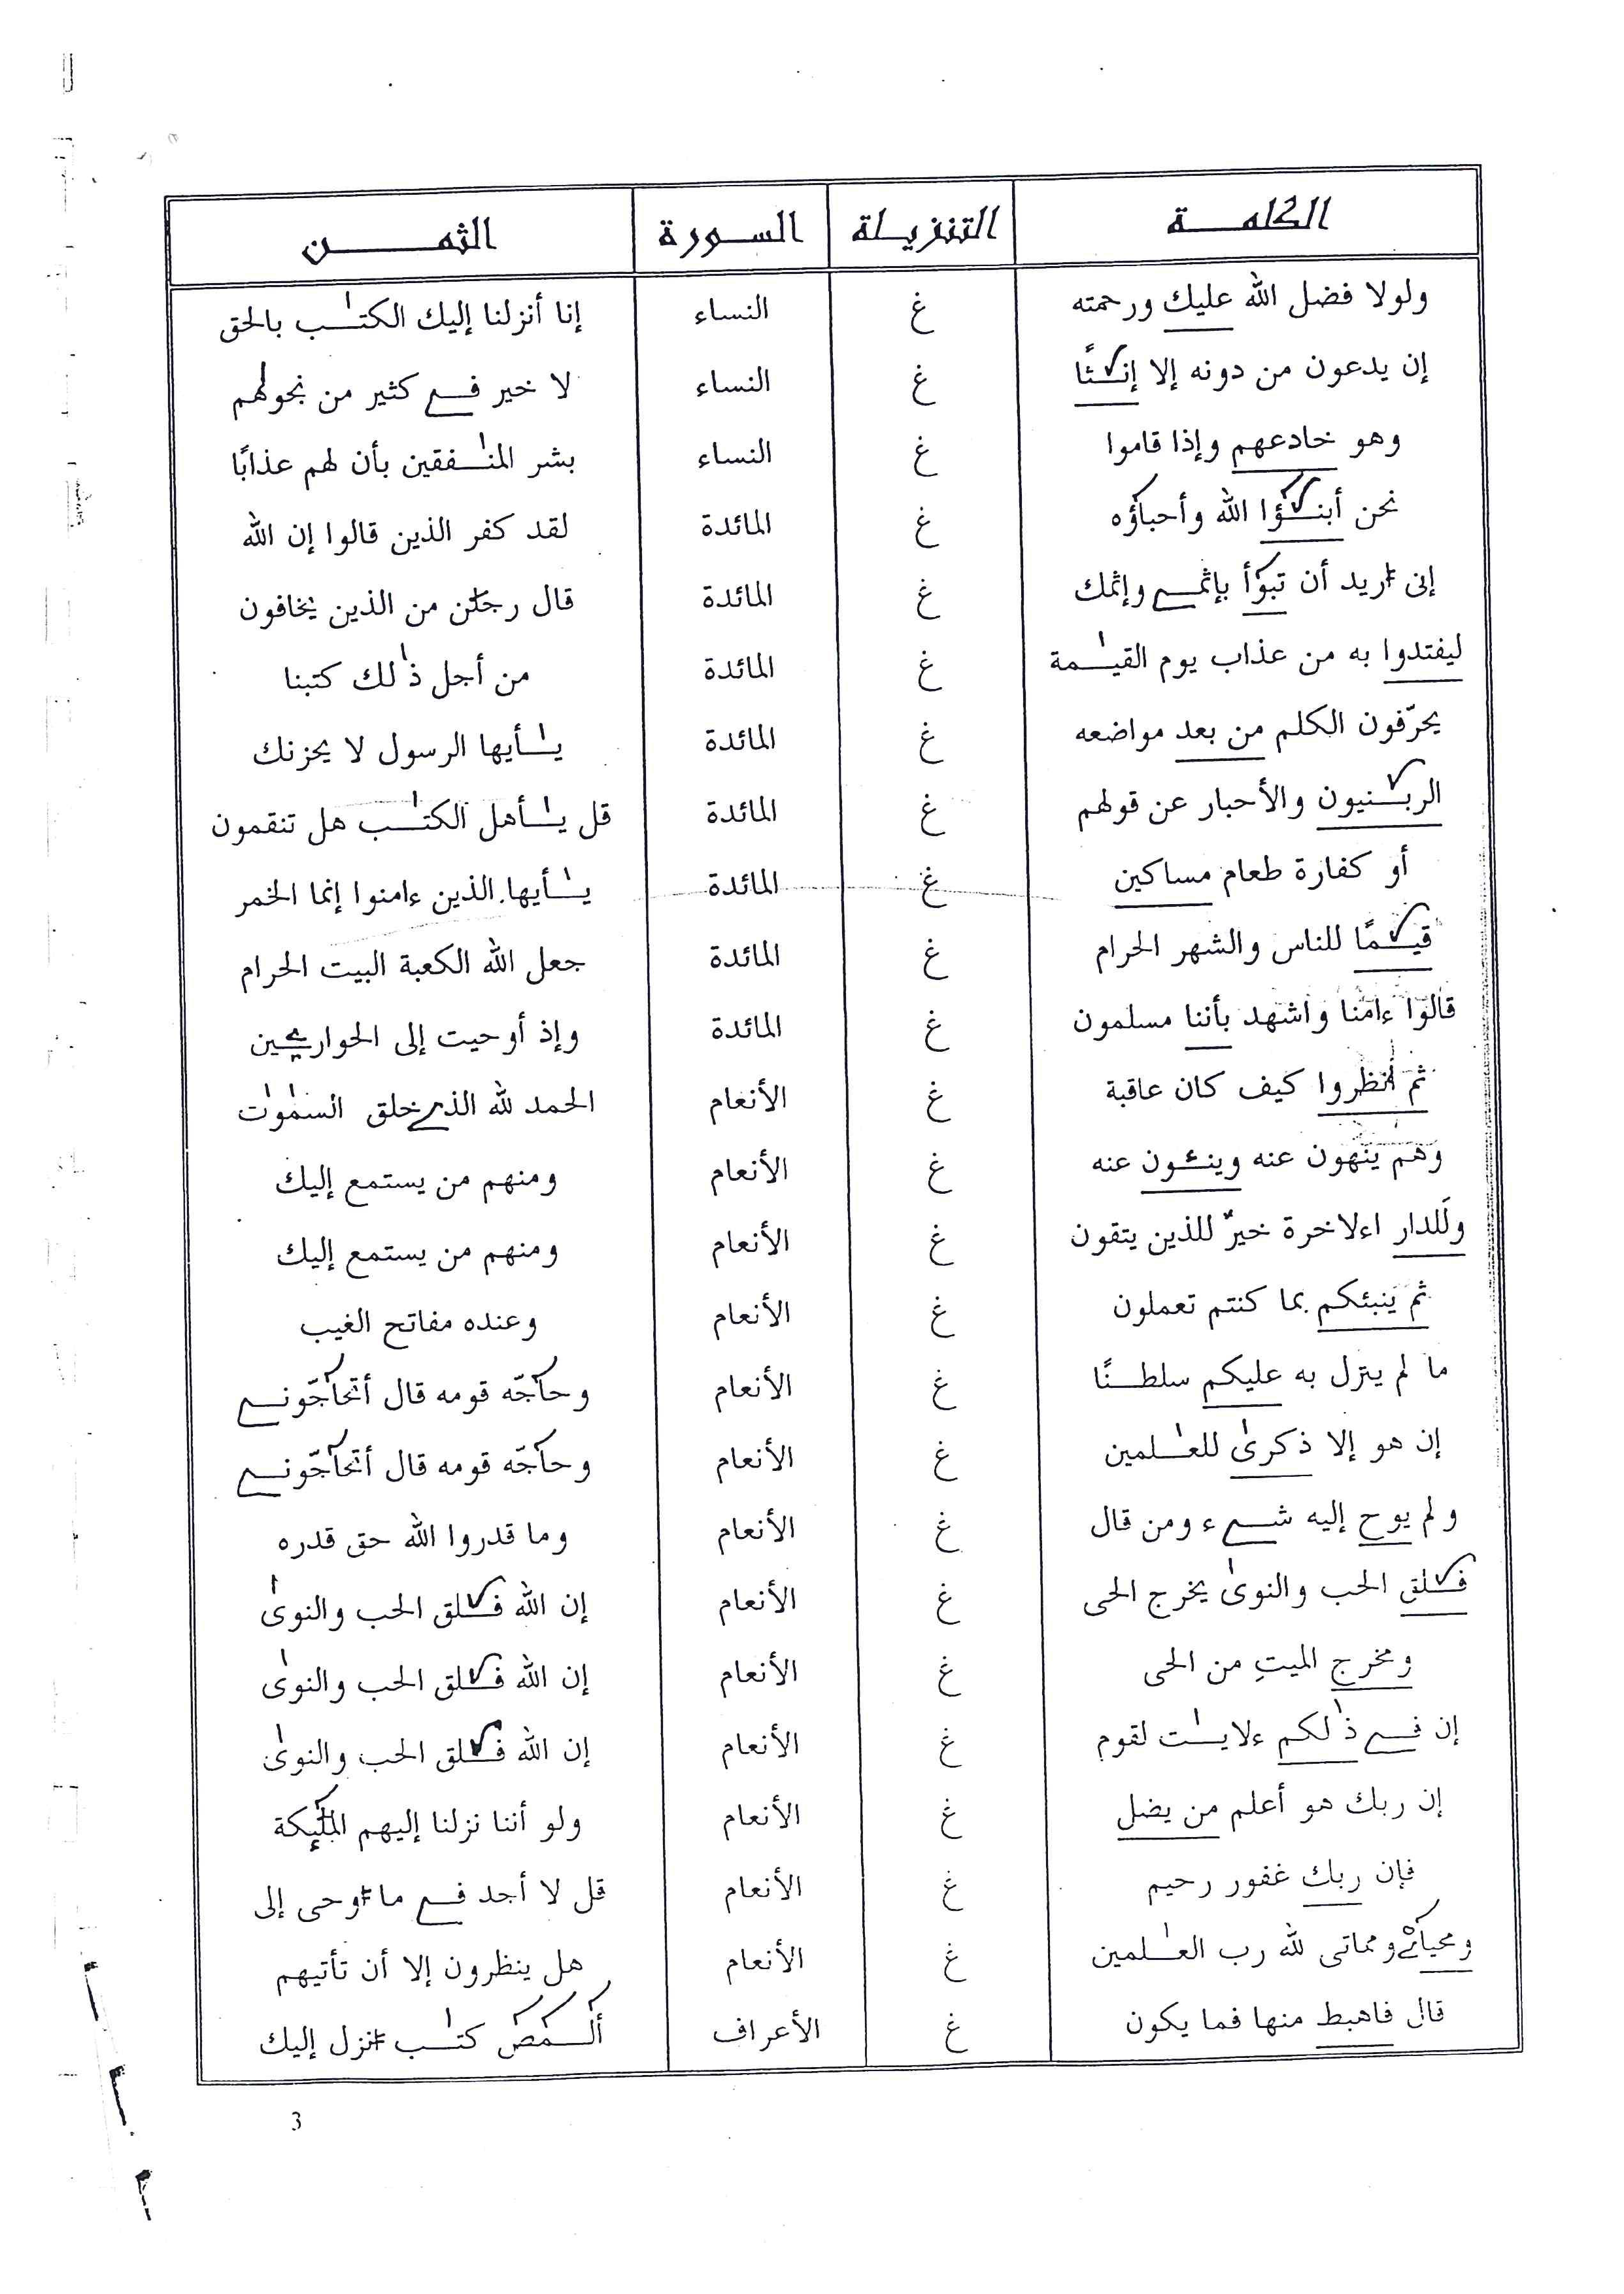 الكلمة التنزيلة السورة الثمن
ولولا فضل الله عليك ورحمته غ النساء إنا أنزلنا إليك الكتٰب بالحق
إن يدعون من دونه إلا إنٰثًا غ النساء لا خير في كثير من نجوىٰهم
وهو خادعهم وإذا قاموا غ النساء بشر المنٰفقين بأن لهم عذابًا
نحن أبنٰؤا الله وأحباؤه غ المائدة لقد كفر الذين قالوا إن الله
إنى أريد أن تبوأ بإثمي وإثمك غ المائدة قال رجلٰن من الذين يخافون
ليفتدوا به من عذاب يوم القيٰمة غ المائدة من أجل ذٰلك كتبنا
يحرّفون الكلم من بعد مواضعه غ المائدة يٰأيها الرسول لا يحزنك
الربٰنيون والأحبار عن قولهم غ المائدة قل يٰأهل الكتٰب هل تنقمون
أو كفارة طعام مساكين غ المائدة يٰأيها الذين ءامنوا إنما الخمر
قيٰمًا للناس والشهر الحرام غ المائدة جعل الله الكعبة البيت الحرام
قالوا ءامنا واشهد بأننا مسلمون غ المائدة وإذ أوحيت إلى الحوارين
ثم أنظروا كيف كان عاقبة غ الأنعام الحمد لله الذي خلق السمٰوٰت
وهم ينهون عنه وينئون عنه غ الأنعام ومنهم من يستمع إليك
وَللدار اءلاخرة خيرٌ للذين يتقون غ الأنعام ومنهم من يستمع إليك
ثم ينبئكم بما كنتم تعملون غ الأنعام وعنده مفاتح الغيب
ما لم ينزل به عليكم سلطٰنًا غ الأنعام وحاجّه قومه قال أتحاجّوني
إن هو إلا ذكرىٰ للعٰلمين غ الأنعام وحاجّه قومه قال أتحاجّوني
ولم يوح إليه شيء ومن قال غ الأنعام وما قدروا الله حق قدره
فٰلق الحب والنوىٰ يخرج الحى غ الأنعام إن الله فٰلق الحب والنوىٰ
ومخرج الميتِ من الحى غ الأنعام إن الله فٰلق الحب والنوىٰ
إن في ذٰلكم ءلايٰت لقوم غ الأنعام إن الله فٰلق الحب والنوىٰ
إن ربك هو أعلم من يضل غ الأنعام ولو أننا نزلنا إليهم الملٰئكة
فإن ربك غفور رحيم غ الأنعام قل لا أجد في ما أوحى إلى
ومحياي ومماتى لله رب العٰلمين غ الأنعام هل ينظرون إلا أن تأتيهم
قال فاهبط منها فما يكون غ الأعراف ألمص كتٰب أنزل إليك
3